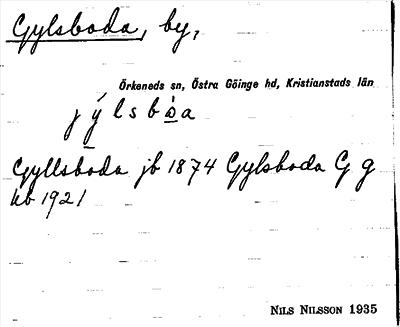 Gylsboda, by,
Örkeneds sn, Östra Göinge hd, Kristianstads län
j ý l s b a
Gyllsboda jb 1874 Gylsboda G g
kb 1921
NILS NILSSON 1935